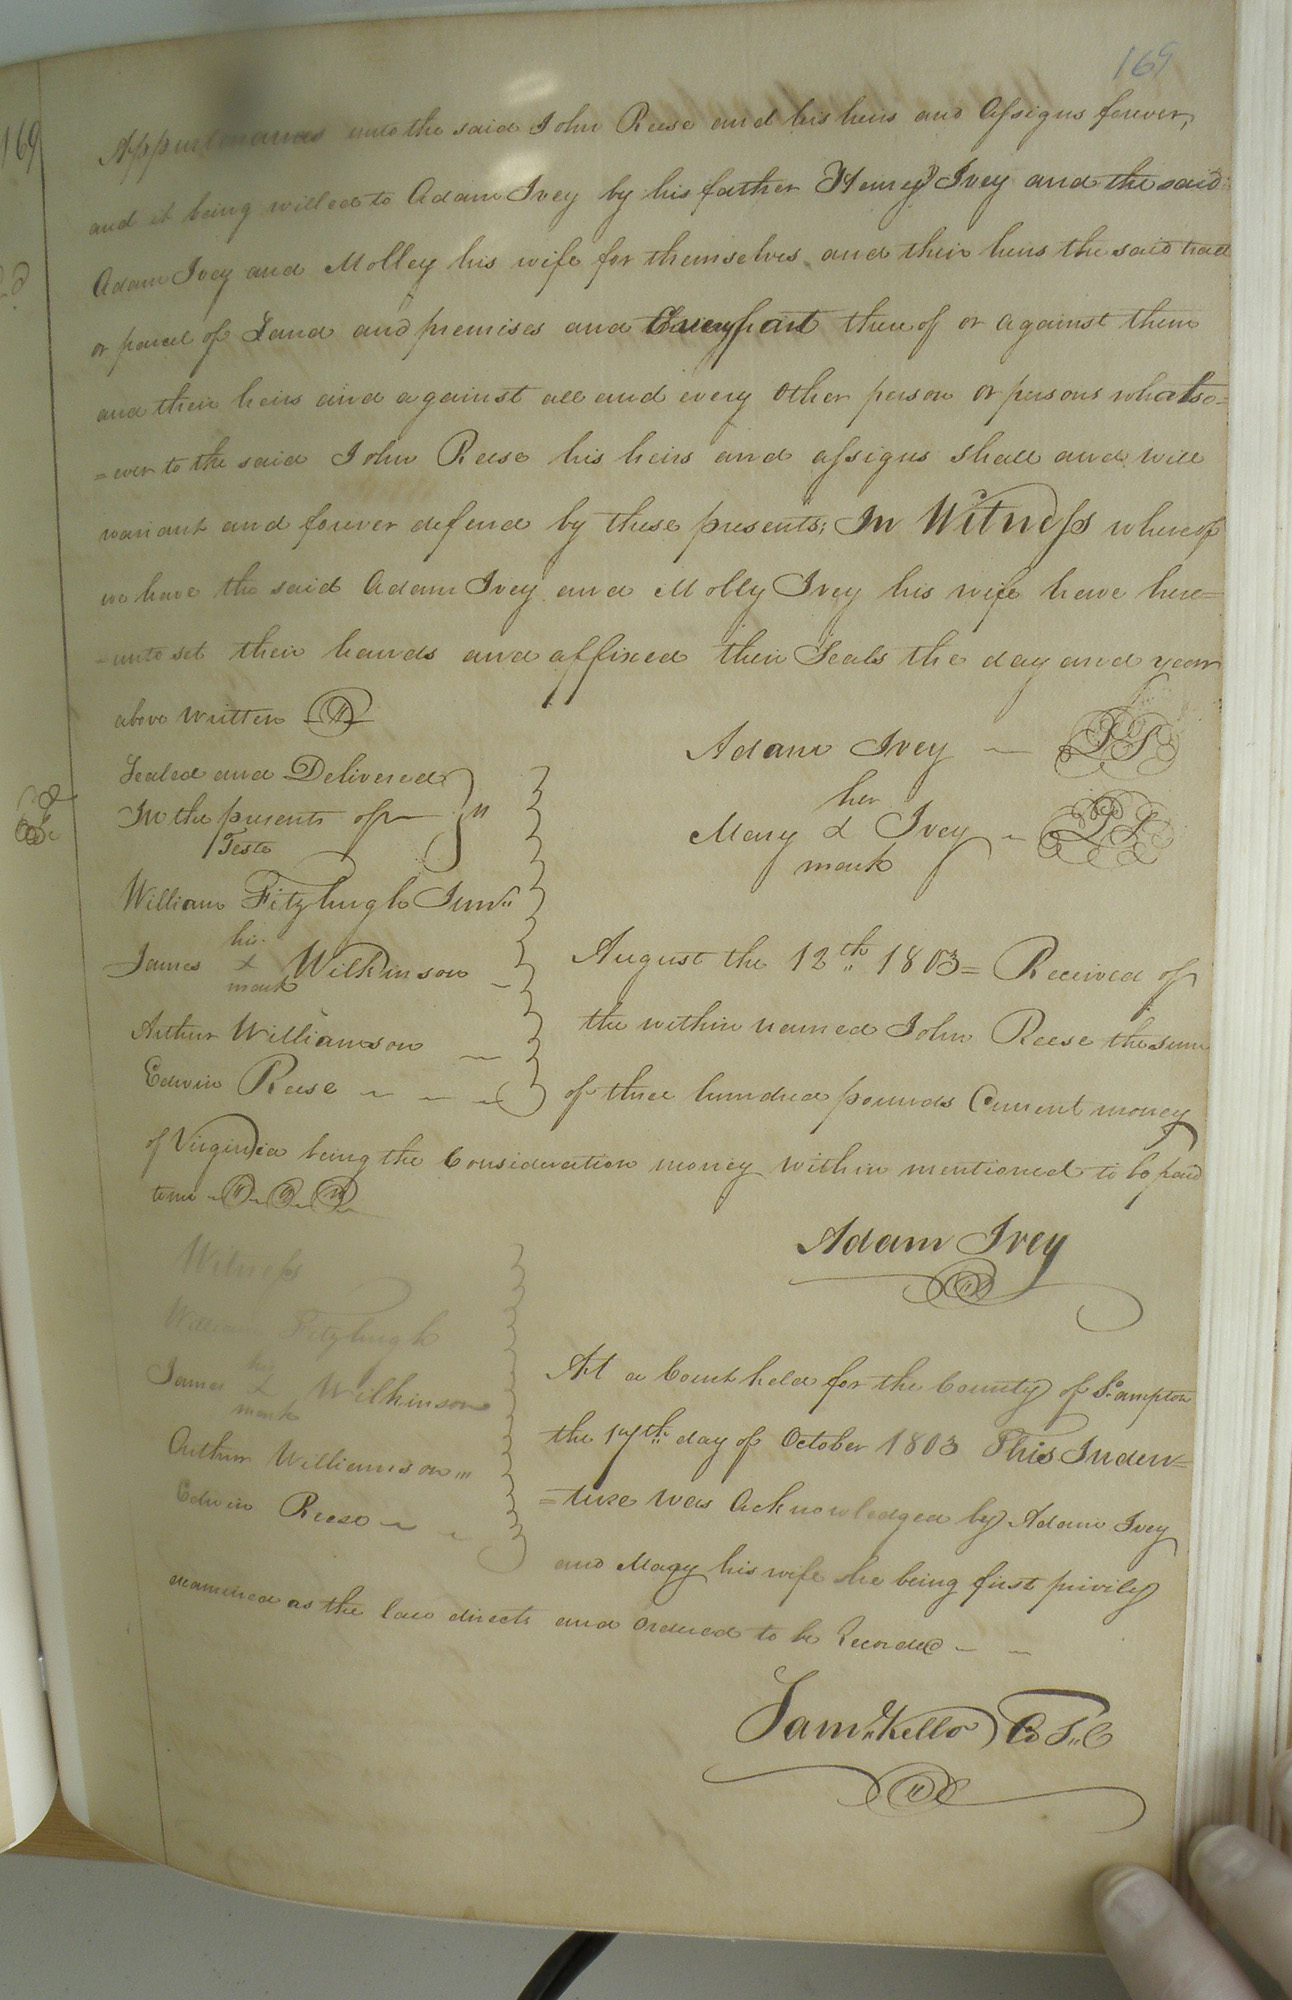 169
169
Appurtenances unto the said John Reese and his heirs and Assigns forever,
and it being willed to Adam Ivey by his father Henry Ivey and the said
Adam Ivey and Molley his wife for themselves and their heirs the said tract
or parcel of Land and premises and Every part there of or against them
and their heirs and against all and every other person or persons whatso=
=ever to the said John Reese his heirs and assigns shall and will
warrant and forever defend by these presents; In Witness whereof
we have the said Adam Ivey and Molly Ivey his wife have here=
=unto set their hands and affixed their Seals the day and year
above written
Adam Ivey LS
Sealed and Delivered
In the presents of
Teste
her
Mary X Ivey LS
mark
William Fitzhugh Junr.
his
James X Wilkinson
mark
Arthur Williamson
Edwin Reese
August the 12th 1803= Received of
the within named John Reese the sum
of three hundred pounds Current money
of Virginia being the Consideration money within mentioned to be paid
to me
Adam Ivey
Witness
William Fitzhugh
his
James X Wilkinson
mark
Arthur Williamson
Edwin Reese
At a Court held for the County of So.ampton
the 17th day of October 1803 This Inden=
=ture was Acknowledged by Adam Ivey
and Mary his wife she being first privily
examined as the law directs and Ordered to be Recorded
Saml. Kello Co S C